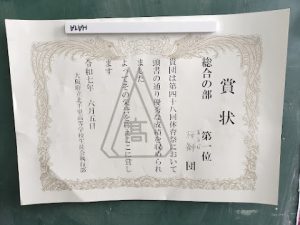 賞状
総合の部 第一位
団
貴団は第四十八回体育祭において
頭書の通り優秀な成績を収められ
ました
よってその栄誉を称えここに賞し
ます
令和七年 六月五日
高